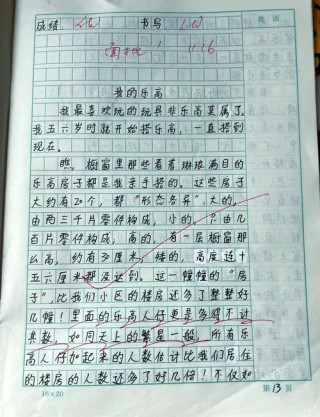 成绩: 优 书写: 优
批语
11.16
我的乐高
我最喜欢玩的玩具非乐高莫属了。
我五六岁时就开始搭乐高，一直搭到
现在。
瞧，橱窗里那些看着琳琅满目的
乐高房子都是我亲手搭的。这些房子
大约有20个，都“形态各异”。大的，
由两三千片零件构成，小的，只由几
百片零件构成；高的，有一层橱窗那
么高，约有多厘米，矮的，高度连十
五六厘米都没达到。这一幢幢的“房
子”，比我们小区的楼房还多了整整好
几幢！里面的乐高人仔更是多得不计
其数，如同天上的繁星一般，所有乐
高人仔加起来的人数估计比我们居住
的楼房的人数还多了好几倍！不仅如
16×20
第13页